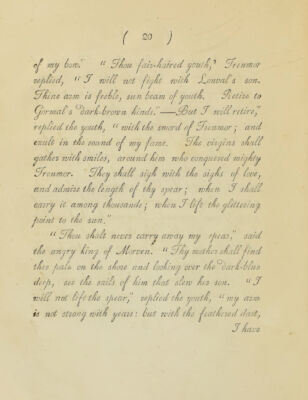 ( 20 )
of my bow." "Thou fair-haired youth," Trenmor
replied, "I will not fight with Lonval's son.
Thine arm is feeble, sun beam of youth. Retire to
Gormal's dark-brown hinds." — "But I will retire,"
replied the youth, "with the sword of Trenmor; and
exult in the sound of my fame. The virgins shall
gather with smiles, around him who conquered mighty
Trenmor. They shall sigh with the sighs of love,
and admire the length of thy spear; when I shall
carry it among thousands; when I lift the glittering
point to the sun."
"Thou shalt never carry away my spear," said
the angry king of Morven. "Thy mother shall find
thee pale on the shore and looking over the dark-blue
deep, see the sails of him that slew her son. "I
will not lift the spear," replied the youth, "my arm
is not strong with years: but with the feathered dart,
I have